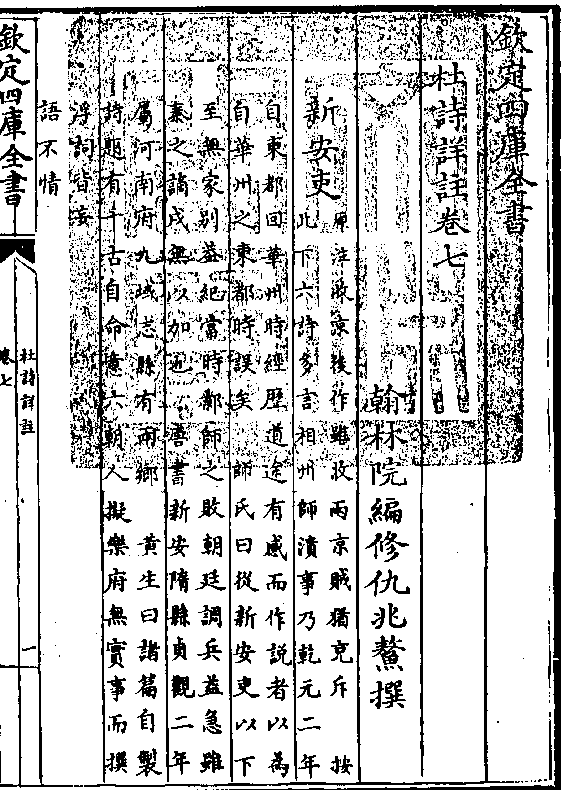 欽定四庫全書
杜詩詳註卷七
翰林院編修仇兆鰲撰
新安吏
原注收京後作雖收兩京賊猶充斥 按
此下六詩多言相州師潰事乃乾元二年
自東都回華州時經歷道途有感而作說者以為
自華州之東都時誤矣 師氏曰從新安吏以下
至無家別蓋紀當時鄴師之敗朝廷調兵益急雖
秦之謫戍無以加也 唐書新安隋縣貞觀二年
屬河南府九域志縣有兩鄉 黄生曰諸篇自製
詩題有千古自命意六朝人擬樂府無實事而撰
浮詞皆妄
語不情
欽定四庫全書
杜詩詳註
卷七
一